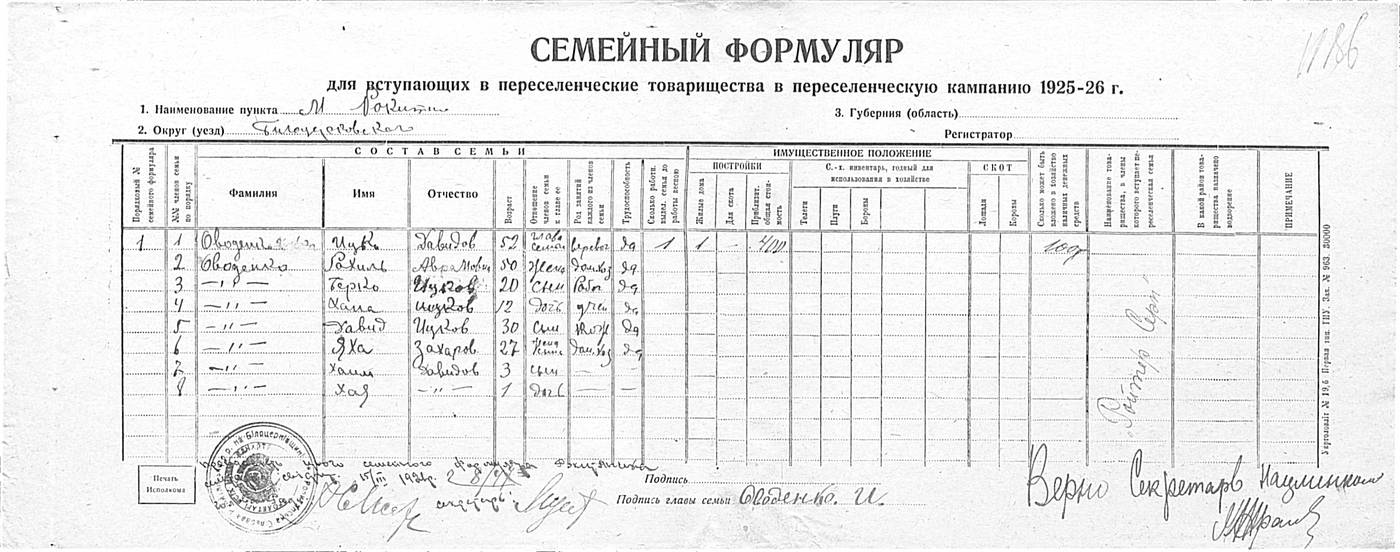 11186
СЕМЕЙНЫЙ ФОРМУЛЯР
для вступающих в переселенческие товарищества в переселенческую кампанию 1925-26 г.
1. Наименование пункта М Рокитно
3. Губерния (область)
2. Округ (уезд) Белоцерковского
Регистратор
СОСТАВ СЕМЬИ
ИМУЩЕСТВЕННОЕ ПОЛОЖЕНИЕ
ПОСТРОЙКИ
С.-х. инвентарь, годный для использования в хозяйстве
СКОТ
Порядковый № семейного формуляра
№№ членов семьи по порядку
Фамилия
Имя
Отчество
Возраст
Отношение членов семьи к главе ее
Род занятий каждого из членов семьи
Трудоспособность
Сколько работн. выдел. семья до работы весною
Жилые дома
Для скота
Приблизит. общая стоимость
Телеги
Плуги
Бороны
Лошади
Коровы
Сколько может быть вложено в хозяйство наличных денежных средств
Наименование товарищества, в члены которого вступает переселенческая семья
В какой район товарищества назначено водворение
ПРИМЕЧАНИЕ
1 1 Оводенко Ицко Давидов 52 глава семьи да 1 1 — 400 100р
2 Оводенко Рахиль Аврамовна 50 жена дом.хоз да
3 —„— Герко Ицков 20 сын рабоч да
4 —„— Хана Ицков 12 дочь учен да
5 —„— Давид Ицков 30 сын да
6 —„— Яха Захаров 27 дом.хоз да
7 —„— Хаим Давидов 3 сын — —
8 —„— Хая —„— 1 дочь — —
„Ройтер Серп“
семейного формуляра
Печать Исполкома
Подпись
Подпись главы семьи Оводенко. И.
Верно Секретарь
Укрголовліт № 19,6 Первая тип. ГПУ. Зак. № 963. 30000